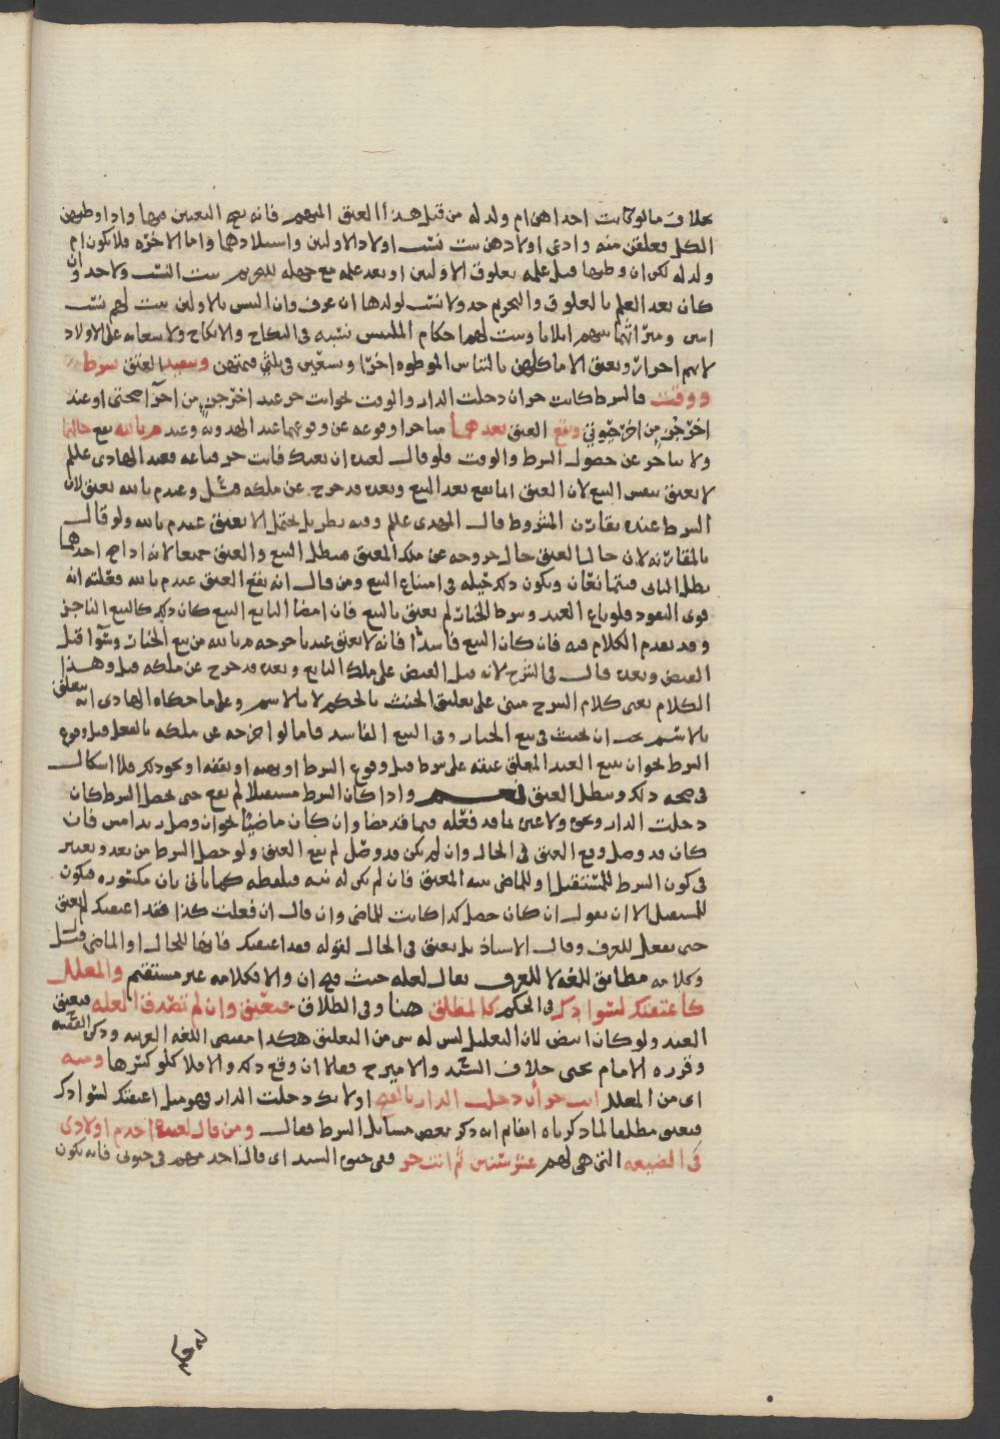 بخلاف ما لو كانت احداهن ام ولد له من قبل هذا العتق المبهم فانه يصح التعيين فيها واذا وطيهن
الكل فعلقن منه وادعى اولادهن ثبت نسب اولاد الاولين واستيلادها واما الاخره فلا تكون ام
ولد له لكن ان وطيها قبل علمه بعلوق الاولين او بعد علمه مع جهله للتحريم ثبت النسب ولا حد وان
كان بعد العلم بالعلوق والتحريم حد ولا نسب لولدها ان عرف وان التبس بالاولين ثبت لهم نسب
اثنين وميراثهما بينهم اثلاثا وثبت لهم احكام الملتبس نسبه في النكاح والانكاح ولا سعايه على الاولاد
لانهم احرار ويعتق الاما كلهن بالتباس الموطوه اخرا ويسعين في ثلثي قيمتهن وتقييد العتق بشرط
ووقت فالشرط كانت حر ان دخلت الدار والوقت نحو انت حر عند اخر جزء من اجزا صحتي او عند
اخر جزء من اجزا حيوتي وقع العتق بعدهما متاخرا وقوعه عن وقوعهما عند المهدويه وعند م بالله يقع حالهما
ولا يتاخر عن حصول الشرط والوقت فلو قال لعبده ان بعتك فانت حر فباعه فعند الهادي عللم
لا يعتق بنفس البيع لان العتق انما يقع بعد البيع وبعده قد خرج عن ملكه قيل وعند م بالله يعتق لان
الشرط عنده يقارن المشروط قال المهدي عللم وفيه نظر بل يحتمل الا يعتق عند م بالله ولو قال
بالمقارنه لان حال العتق حال خروجه عن ملك المعتق فيبطل البيع والعتق جميعا لانه اذا صح احدهما
بطل الثاني فيتمانعان ويكون ذلك حيله في امتناع البيع ومن قال انه يقع العتق عند م بالله فعلته انه
قوى النفوذ فلو باع العبد وشرط الخيار لم يعتق بالبيع فان امضا البايع البيع كان ذلك كالبيع الناجز
وقد تقدم الكلام فيه فان كان البيع فاسدا فانه لا يعتق عند يا ح وحه م بالله من بيع الخيار وسوا قبل
القبض وبعده قال في الشرح لانه قبل القبض على ملك البايع وبعده قد خرج عن ملكه قيل وهذا
الكلام يعني كلام الشرح مبني على تعليق الحنث بالحكم لا بالاسم وعلى ما حكاه الهادي انه يتعلق
بالاسم يجب ان يحنث في بيع الخيار وفي البيع الفاسد فاما لو اخرجه عن ملكه بالفعل قبل وقوع
الشرط نحو ان يبيع العبد المعلق عتقه على شرط قبل وقوع الشرط او يهبه او يقفه او نحو ذلك فلا اشكال
في صحه ذلك ويبطل العتق واذا كان الشرط مستقبلا لم يقع حتى يحصل الشرط كان
دخلت الدار ونحوه ولا عبره بما قد فعله فيما قد مضا وان كان ماضيا نحو ان وصل زيد امس فان
كان قد وصل وقع العتق في الحال وان لم يكن قد وصل لم يقع العتق ولو حصل الشرط من بعد ويعتبر
في كون الشرط للمستقبل او للماضي نيه المعتق فان لم يكن له نيه فبلفظه كما ياتي بان مكسوره فيكون
للمستقبل الا ان يقول ان كان حصل كذا كانت للماضي وان قال ان فعلت كذا فقد اعتقتك لم يعتق
حتى يفعل للعرف وقال الاستاذ بل يعتق في الحال لقوله فقد اعتقتك فانها للحال او الماضي قيل
وكلامه مطابق للغه لا للعرف يقال لعله حيث فتح ان والا فكلامه غير مستقيم والمعلل
كاعتقتك لسوادك في الحكم كالمطلق هنا وفي الطلاق فيعتق وان لم تصدق العله فيعتق
العبد ولو كان ابيض لان التعليل ليس له شي من التعليق هكذا مقتضى اللغه العربيه وذكره الفقيه
وقرره الامام يحيى خلاف السيد والامير ح فقالا ان وقع ذلك والا فلا كلو كسرها ومنه
اى من المعلل انت حر أن دخلت الدار بالفتح او لانك دخلت الدار فهو مثل اعتقتك لسوادك
فيعتق مطلقا لما ذكرناه انفا ثم انه ذكر بعض مسايل الشرط فقال ومن قال لعبده اخدم اولادى
في الضيعه التي هي لهم عشر سنين ثم انت حر ففي حيوه السيد اى قال اخدمهم في حيوتي فانه يكون